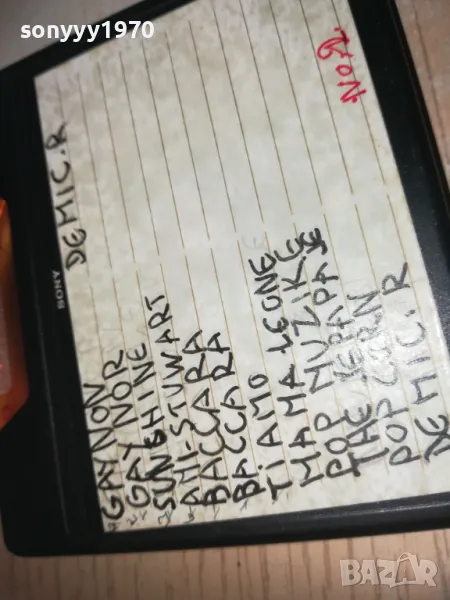 sonyyy1970
SONY
DEMIC.R
No2.
GAYNON
GAYNOR
SUNSHINE
AMI-STUWART
BACCARA
BACCARA
TI AMO
MAMA LEONE
POP MUZIKE
THE
POPCORN
DEMIC.R
BAZAR